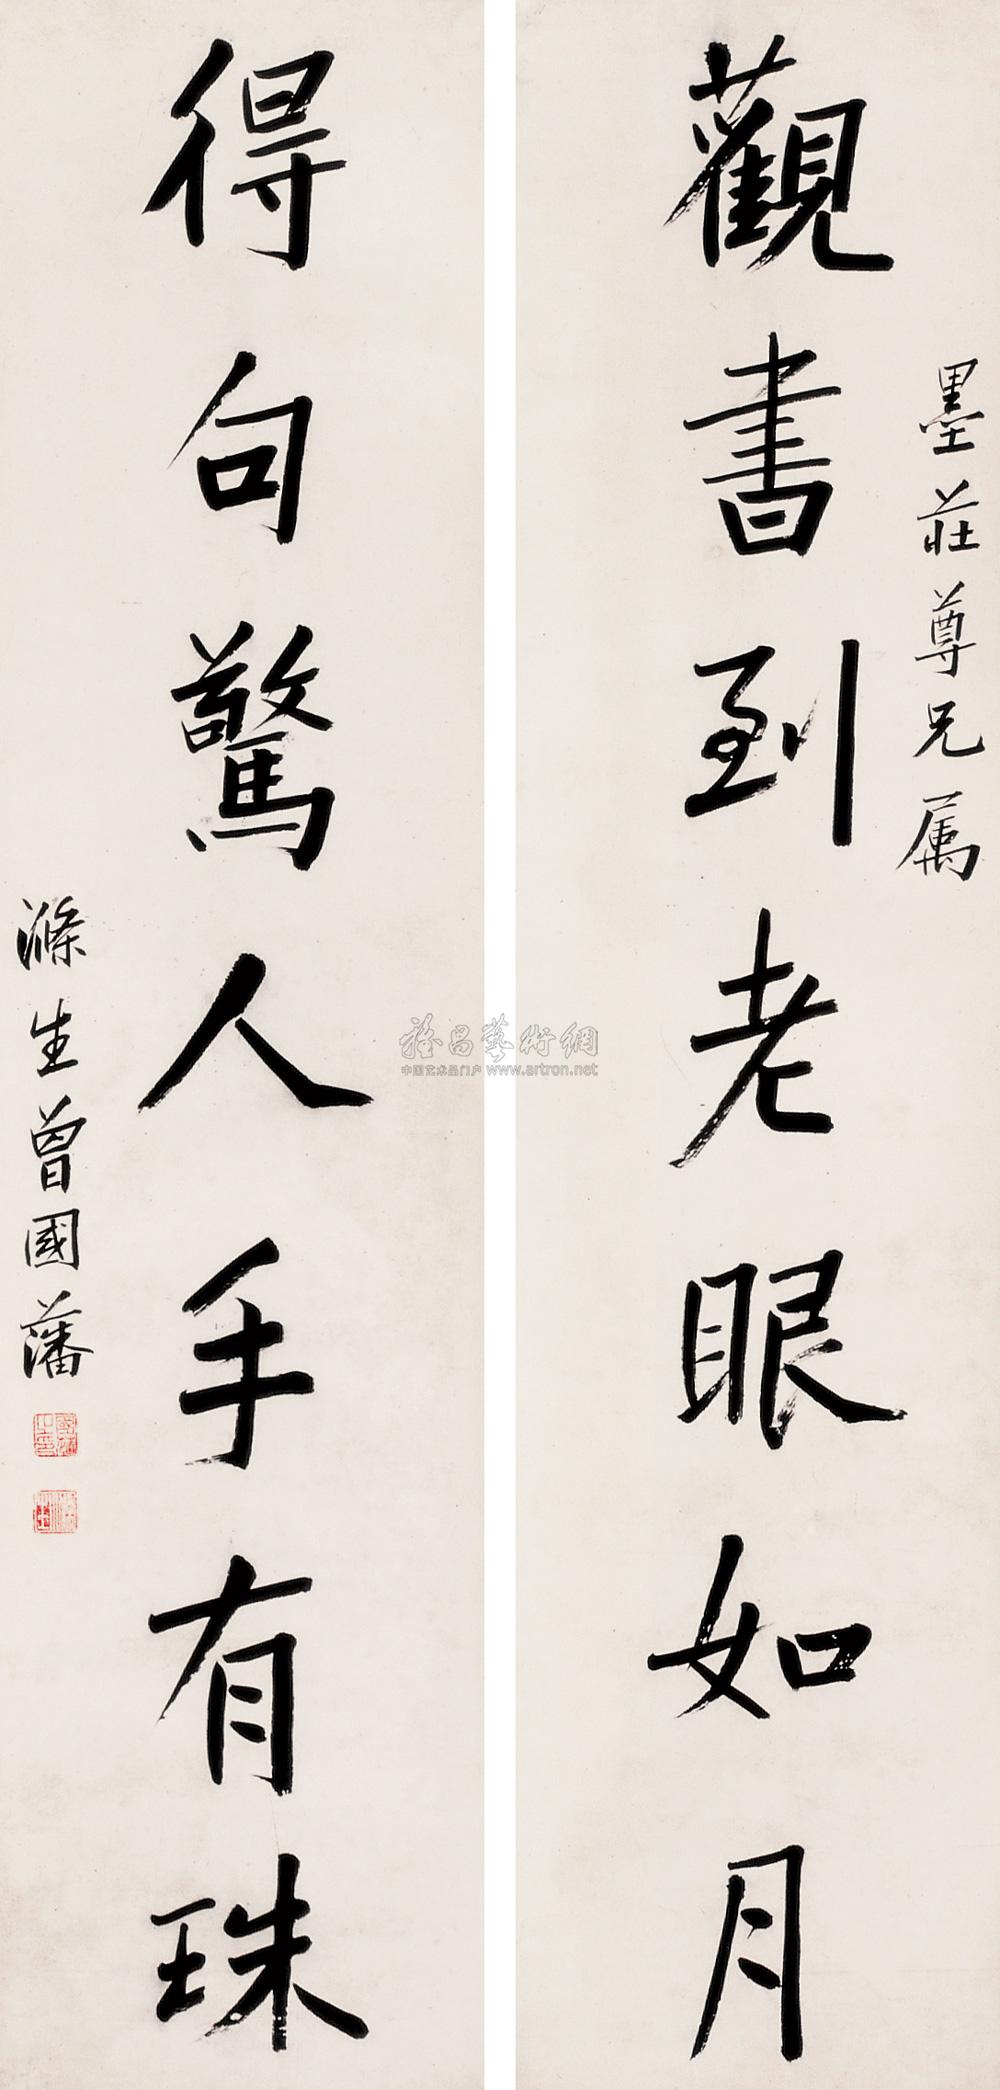 墨莊尊兄属
觀書到老眼如月
得句驚人手有珠
滌生曾國藩
雅昌藝術網
中国艺术品门户 www.artron.net